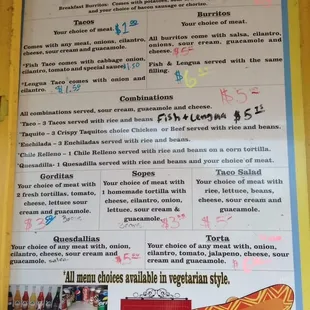 Breakfast Burritos: Comes with potatoes,
and your choice of bacon sausage or chorizo.
Tacos
Your choice of meat
Comes with any meat, onions, cilantro, cheese, sour cream and guacamole.
*Fish Taco comes with cabbage onion, cilantro, tomato and special sauce
*Lengua Taco comes with onion and cilantro.
Burritos
Your choice of meat.
All burritos come with salsa, cilantro, onions, sour cream, guacamole and cheese.
Fish & Lengua served with the same filling.
Combinations
$5
All combinations served, sour cream, guacamole and cheese.
*Taco – 3 Tacos served with rice and beans Fish + Lengua
*Taquito – 3 Crispy Taquitos choice Chicken or Beef served with rice and beans.
*Enchilada – 3 Enchiladas served with rice and beans.
*Chile Relleno – 1 Chile Relleno served with rice and beans on a corn tortilla.
*Quesadilla- 1 Quesadilla served with rice and beans and your choice of meat.
Gorditas
Your choice of meat with
2 fresh tortillas, tomato,
cheese, lettuce sour
cream and guacamole.
Sopes
Your choice of meat with
1 homemade tortilla with
cheese, cilantro, onion,
lettuce, sour cream &
guacamole.
Taco Salad
Your choice of meat with
rice, lettuce, beans,
cheese, sour cream and
guacamole.
Quesdallias
Your choice of any meat with, onion,
cilantro, cheese, sour cream and
guacamole
Torta
Your choice of any meat with, onion,
cilantro, tomato, jalapeno, cheese, sour
cream and guacamole.
*All menu choices available in vegetarian style.